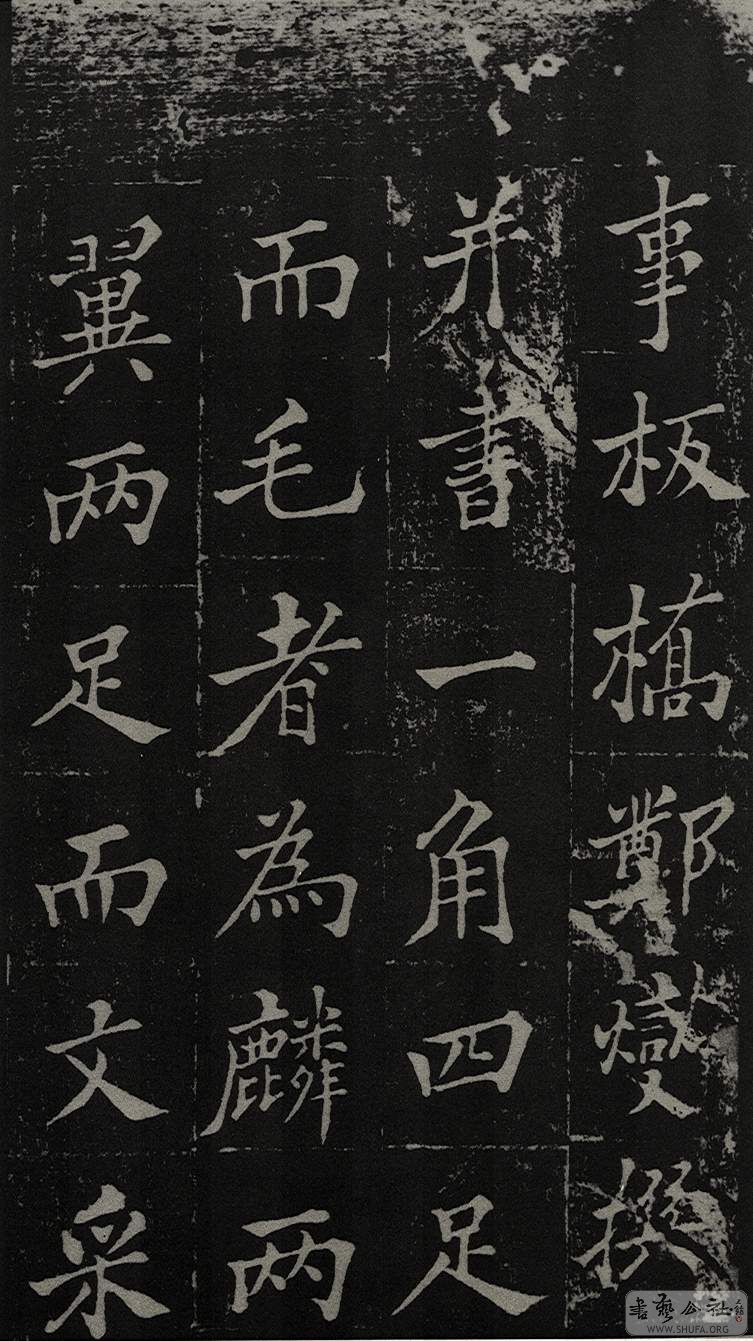 事板橋鄭燮撰
并書一角四足
而毛者為麟两
翼两足而文采
書藝公社
WWW.SHUFA.ORG